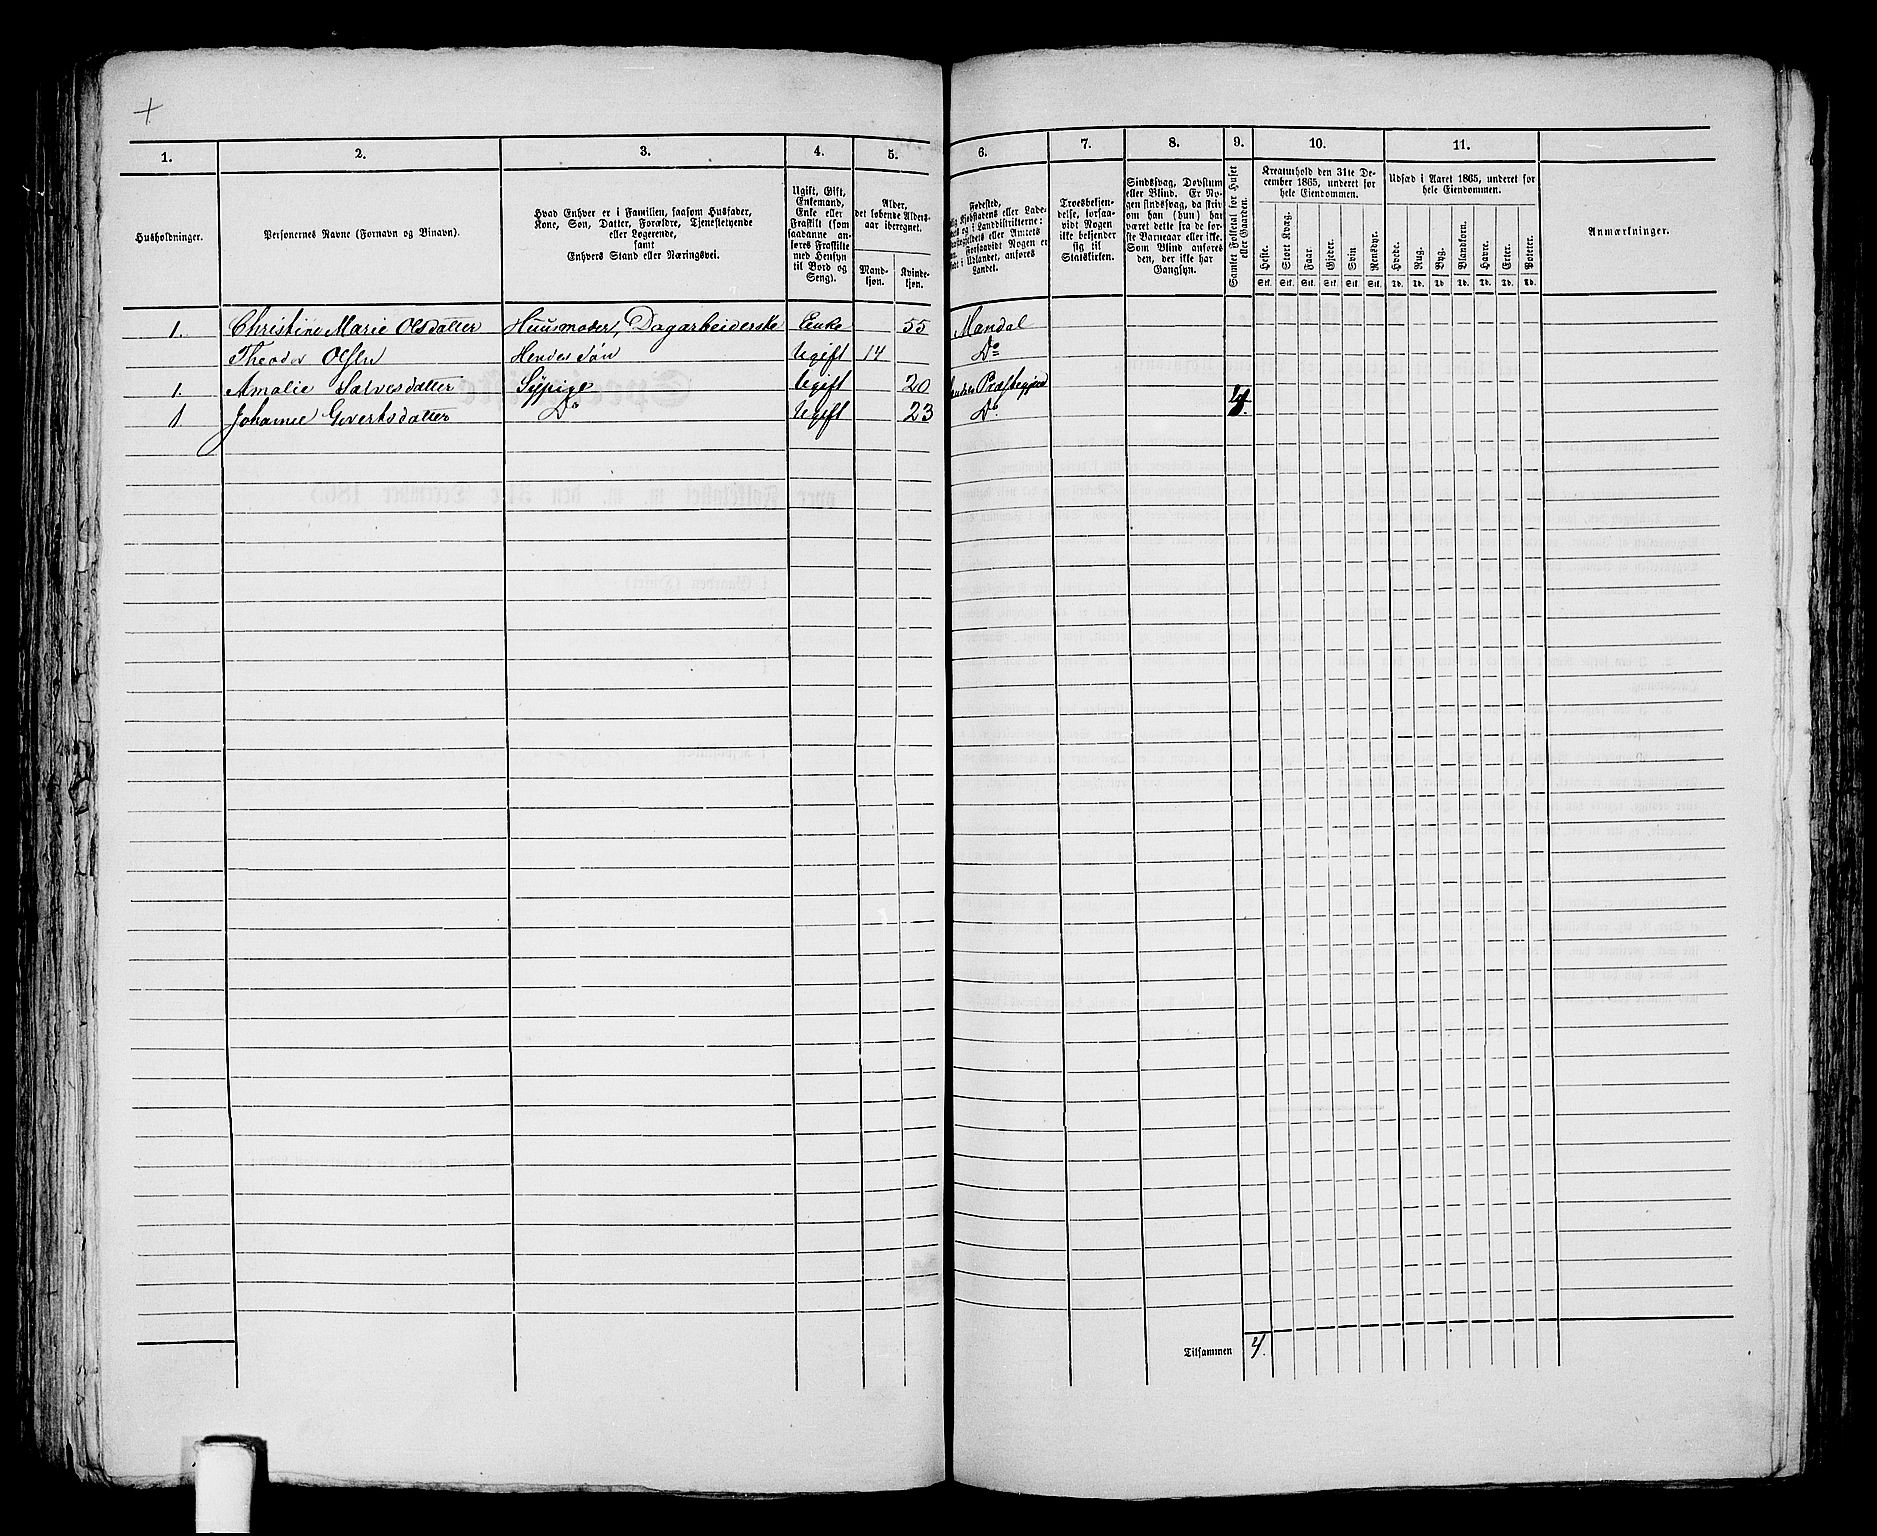 +
1. 2. 3. 4. 5. 6. 7. 8. 9. 10. 11.
Husholdninger.
Personernes Navne (Fornavn og Binavn).
Hvad Enhver er i Familien, saasom Husfader,
Kone, Søn, Datter, Forældre, Tjenestetyende
eller Logerende,
samt
Enhvers Stand eller Næringsvei.
Ugift, Gift,
Enkemand,
Enke eller
Fraskilt (som
saadanne an-
føres Fraskilte
med Hensyn
til Bord og
Seng).
Alder,
det løbende Alders-
aar iberegnet.
Mand-
kjøn.
Kvinde-
kjøn.
Fødested,
Kjøbstadens eller Lade-
og i Landdistrikterne:
eller Amtets
Forsaavidt Nogen er
i Udlandet, anføres
Landet.
Troesbekjen-
delse, forsaa-
vidt Nogen
ikke bekjender
sig til
Statskirken.
Sindssvag, Døvstum
eller Blind. Er No-
gen sindssvag, da skriv
om han (hun) har
været dette fra de før-
ste Barneaar eller ikke.
Som Blind anføres
den, der ikke har
Gangsyn.
Samlet Folketal for Huset
eller Gaarden.
Kreaturhold den 31te De-
cember 1865, underet for
hele Eiendommen.
Heste. Stort Kvæg. Faar. Gjeder. Svin. Rensdyr.
Stk. Stk. Stk. Stk. Stk. Stk.
Udsæd i Aaret 1865, underet for
hele Eiendommen.
Hvede. Rug. Byg. Blandkorn. Havre. Erter. Poteter.
Td. Td. Td. Td. Td. Td. Td.
Anmærkninger.
1. Christine Marie Olsdatter Huusmoder, Dagarbeiderske Enke 55 Mandal
Theodor Olsen Hendes Søn Ugift 14 Do
1. Amalie Salvesdatter Sypige Ugift 20 Præstegjeld
1 Johanne Govertsdatter Do Ugift 23 Do. 4.
Tilsammen 4.